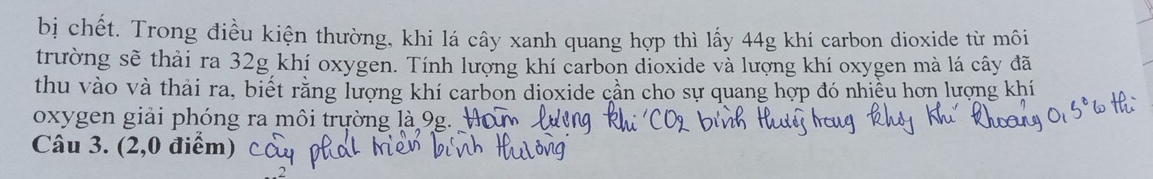 bị chết. Trong điều kiện thường, khi lá cây xanh quang hợp thì lấy 44g khí carbon dioxide từ môi
trường sẽ thải ra 32g khí oxygen. Tính lượng khí carbon dioxide và lượng khí oxygen mà lá cây đã
thu vào và thải ra, biết rằng lượng khí carbon dioxide cần cho sự quang hợp đó nhiều hơn lượng khí
oxygen giải phóng ra môi trường là 9g. Hàm lượng khí CO2 bình thường trong không khí khoảng 0,5% thì
Câu 3. (2,0 điểm) cây phát triển bình thường
2